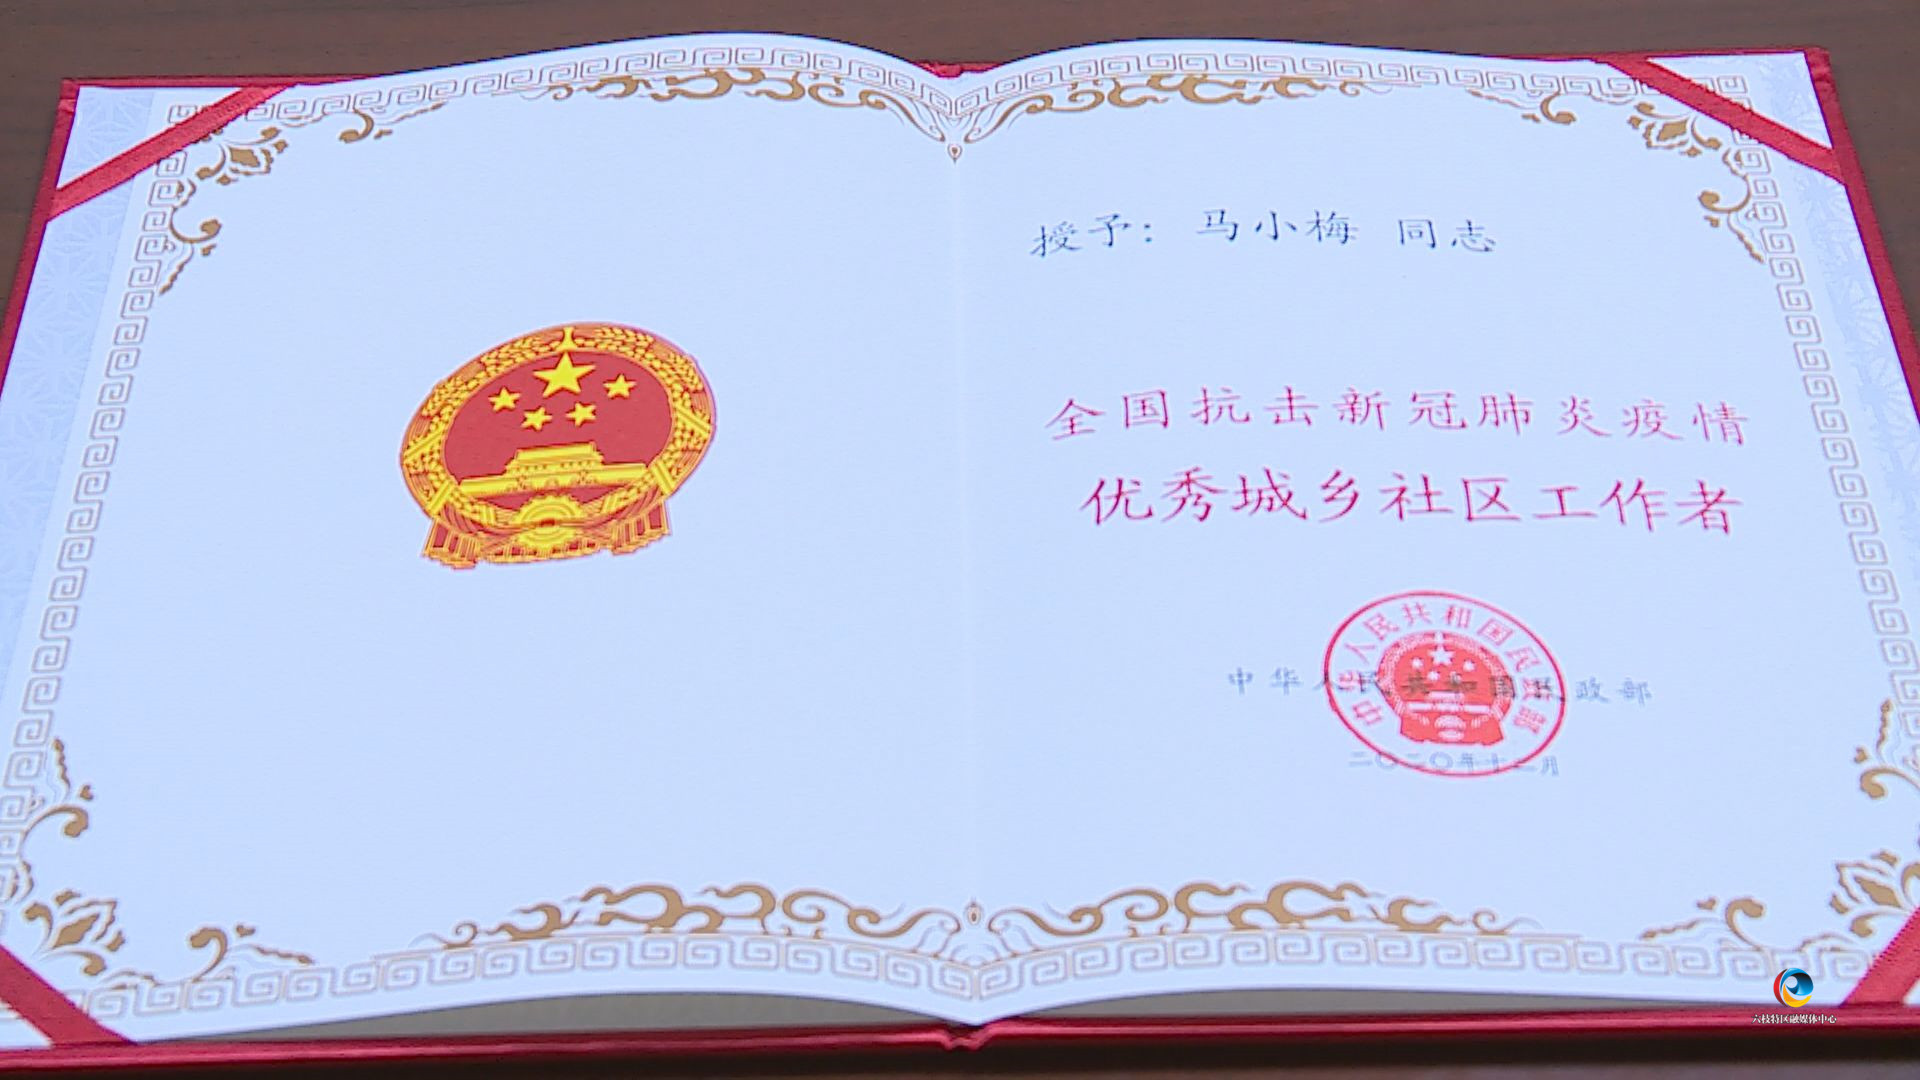 授予：马小梅 同志
全国抗击新冠肺炎疫情
优秀城乡社区工作者
中华人民共和国民政部
中华人民共和国民政部
二〇二〇年十二月
六枝特区融媒体中心